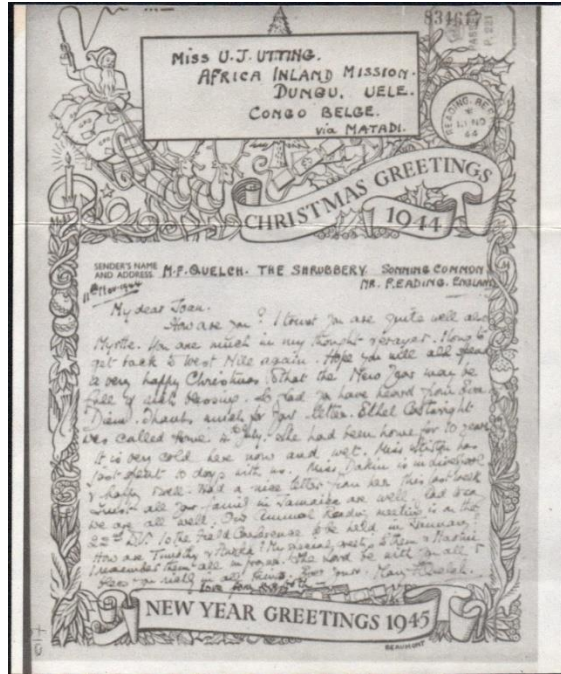 834617
Miss U.J. UTTING.
AFRICA INLAND MISSION.
DUNGU, UELE.
CONGO BELGE.
via MATADI.
CHRISTMAS GREETINGS
1944
SENDER'S NAME
AND ADDRESS M.P. QUELCH. THE SHRUBBERY SONNING COMMON
NR. READING. ENGLAND
My dear Joan.
How are you? I trust you are quite well also
Myrtle. You are much in my thought & prayer. I long to
get back to West Nile again. Hope you will all spend
a very happy Christmas & that the New Year may be
full of rich blessing. So glad you have heard from
Thanks much for your letter. Ethel Cartwright
was called Home in July. She had been home for 10 years
It is very cold here now and wet. Miss has
just spent 10 days with us. Miss Dakin is in Liverpool
& happy & well. Had a nice letter from her this last week
Trust all your family in Jamaica are well. Glad to say
we are all well. Our annual Reading meeting is on the
22nd to the Field Conference to be held in January
How are Timothy &
I remember them all in prayer. The Lord be with you all &
bless you richly in all things. Mary P Quelch.
NEW YEAR GREETINGS 1945
BEAUMONT